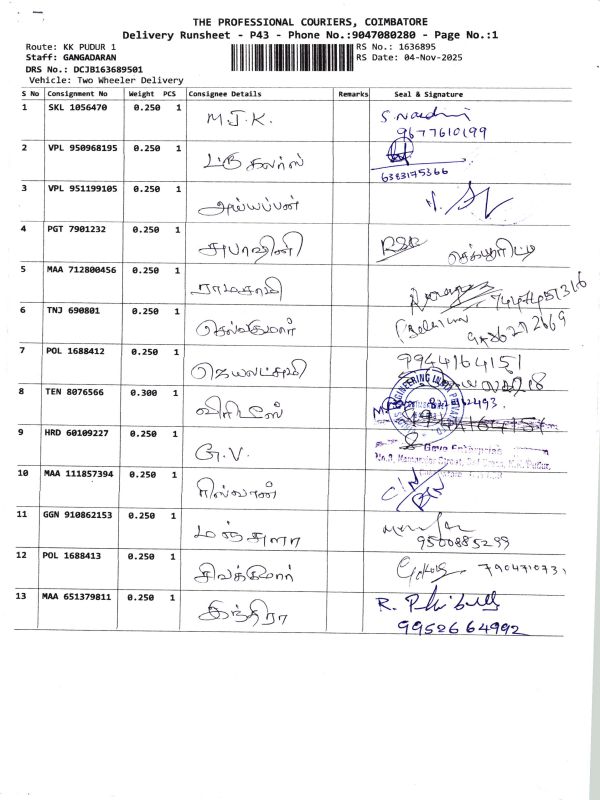 THE PROFESSIONAL COURIERS, COIMBATORE
Delivery Runsheet - P43 - Phone No.:9047080280 - Page No.:1
Route: KK PUDUR 1 RS No.: 1636895
Staff: GANGADARAN RS Date: 04-Nov-2025
DRS No.: DCJB163689501
Vehicle: Two Wheeler Delivery
S No Consignment No Weight PCS Consignee Details Remarks Seal & Signature
1 SKL 1056470 0.250 1 M.J.K. 9677610199
2 VPL 950968195 0.250 1 6383175366
3 VPL 951199105 0.250 1 அய்யப்பன்
4 PGT 7901232 0.250 1 சுபாஷினி
5 MAA 712800456 0.250 1 ராமசாமி
6 TNJ 690801 0.250 1 செல்வகுமார்
7 POL 1688412 0.250 1 ஜெயலட்சுமி 9944164151
8 TEN 8076566 0.300 1
9 HRD 60109227 0.250 1 G.V.
10 MAA 111857394 0.250 1
11 GGN 910862153 0.250 1 மஞ்சுளா 9500885299
12 POL 1688413 0.250 1 சிவக்குமார் 7904710731
13 MAA 651379811 0.250 1 இந்திரா R.
9952664992